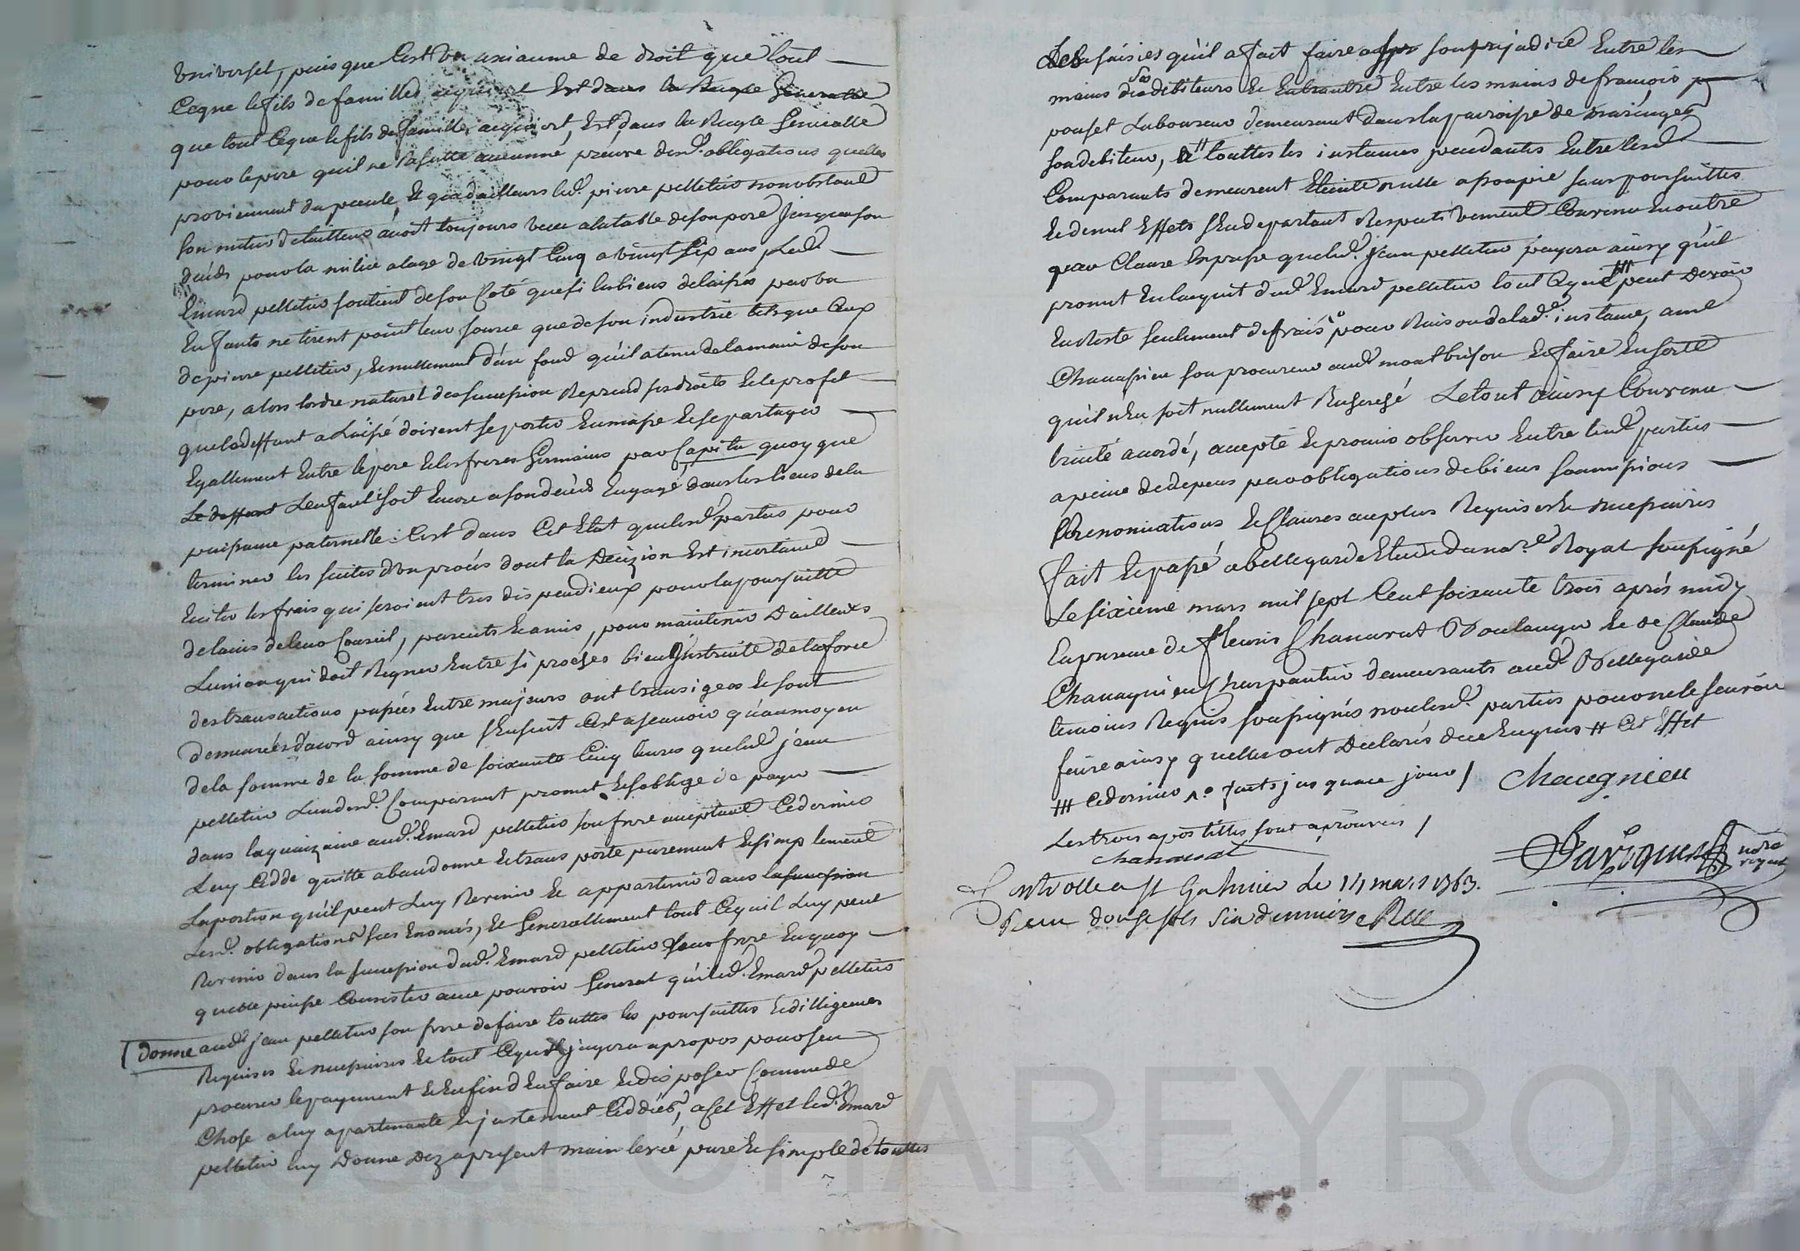 universel, puis que C'est un axiaume de droit que tout
Ceque le fils de familles acquiert Est dans la Reigle Generalle
que tout Ceque le fils de famille acquiert, Est dans la Reigle Generalle
pour le pere qu'il ne Raporte aucunne preuve desd. obligations quelles
proviennent du pecule, Et que d'ailleurs led. pierre pelletier nonobstant
son metier de tailleur avoit toujours vecu a la table de son pere Jusqu'a son
deces pour la milice a l'age de vingt Cinq a vingt Six ans Led.
Emard pelletier soutient de son Coté que si les biens delaissés par un
Enfants ne tirent point leur source que de son industrie tels que Ceux
de pierre pelletier, Et nullement d'un fond qu'il a tenu de la main de son
pere, alors l'ordre naturel de succession Reprend ses droits Et le profit
que le deffunt a Laissé doivent se porter En masse Et se partager
Egallement Entre le pere Et les freres Germains par Capita quoy que
Le deffunt L'enfant soit Encore a son deces Engagé dans les liens de la
puissance paternelle. C'est dans Cet Etat que lesd. parties pour
terminer les suites d'un procés dont la Decizion Est incertaine
Eviter les frais qui seroient tres dispendieux pour la poursuitte
de l'avis de leur Conseil, parents Et amis, pour maintenir D'ailleurs
L'union qui doit Regner Entre si proches bien instruite de la force
des transactions passées Entre majeurs ont transigées Et sont
demeurées d'acord ainsy que s'Ensuit C'est a scavoir qu'au moyen
de la somme de la somme de soixante Cinq livres que led. jean
pelletier L'un desd. Comparant promet Et s'oblige de payer
dans la quinzaine aud. Emard pelletier son frere acceptant Ce dernier
Luy Cedde quitte abandonne Et transporte purement Et simplement
La portion qu'il peut Luy Revenir Et appartenir dans la succession
Lesd. obligations sus Enoncés, Et Generallement tout Ce qui Luy peut
Revenir dans la succession dud. Emard pelletier leur frere En quoy
quelle puisse Consister avec pouvoir General qui led. Emard pelletier
donne aud. jean pelletier son frere de faire touttes les poursuittes Et dilligences
Requises Et necessaires Et tout Ceque jugera apropos pour s'en
procurer le payement Et En fin d'En faire Et disposer Comme de
Chose a luy apartenante Et justement Ceddées, a Cet Effet led. Emard
pelletier luy Donne Dez apresent main levée pure Et simple de touttes
Les saisies qu'il a fait faire a son prejudice Entre les
mains de ses debiteurs Et Entre les mains de francois
pouset Laboureur demeurant dans la paroisse de maringes
son debiteur, Et touttes les instances pendantes Entre lesd.
Comparants demeurent Eteinte nulle assoupie sans poursuittes
Et de nul Effets s'En departant Respectivement Convenu En outre
par Clause Expresse que led. Jean pelletier payera ainsy qu'il
promet En l'acquit dud. Emard pelletier tout Ceque /// peut Devoir
En Reste seulement de frais pour Raison de lad. instance, a me
Chanassieu son procureur aud. montbrison Et faire En sorte
qu'il n'En soit nullement Recherché Le tout ainsy Convenu
traité acordé, accepté Et promis observer Entre lesd. parties
a peine de depens par obligations de biens soumissions
Renonciations Et Clauses au plus Requises Et necessaires
fait Et passé a bellegarde Etude du nore Royal soussigné
Le sixieme mars mil sept Cent soixante trois aprés midy
En presence de fleuris Chanavat Boulanger Et de Claude
Chaugnieu Charpentier demeurants aud. Bellegarde
temoins Requis soussignés non lesd. parties pour ne le scavoir
faire ainsy quelles ont Declarés de ce Enquis # Cet Effet
/// Ce dernier faits jusqu'a ce jour /
Les trois apostilles sont aprouvees /
Chaugnieu
Chanavat
nore royal
Controllé a St Galmier Le 14 mars 1763.
Reçu douze sols Six deniers
CHAREYRON